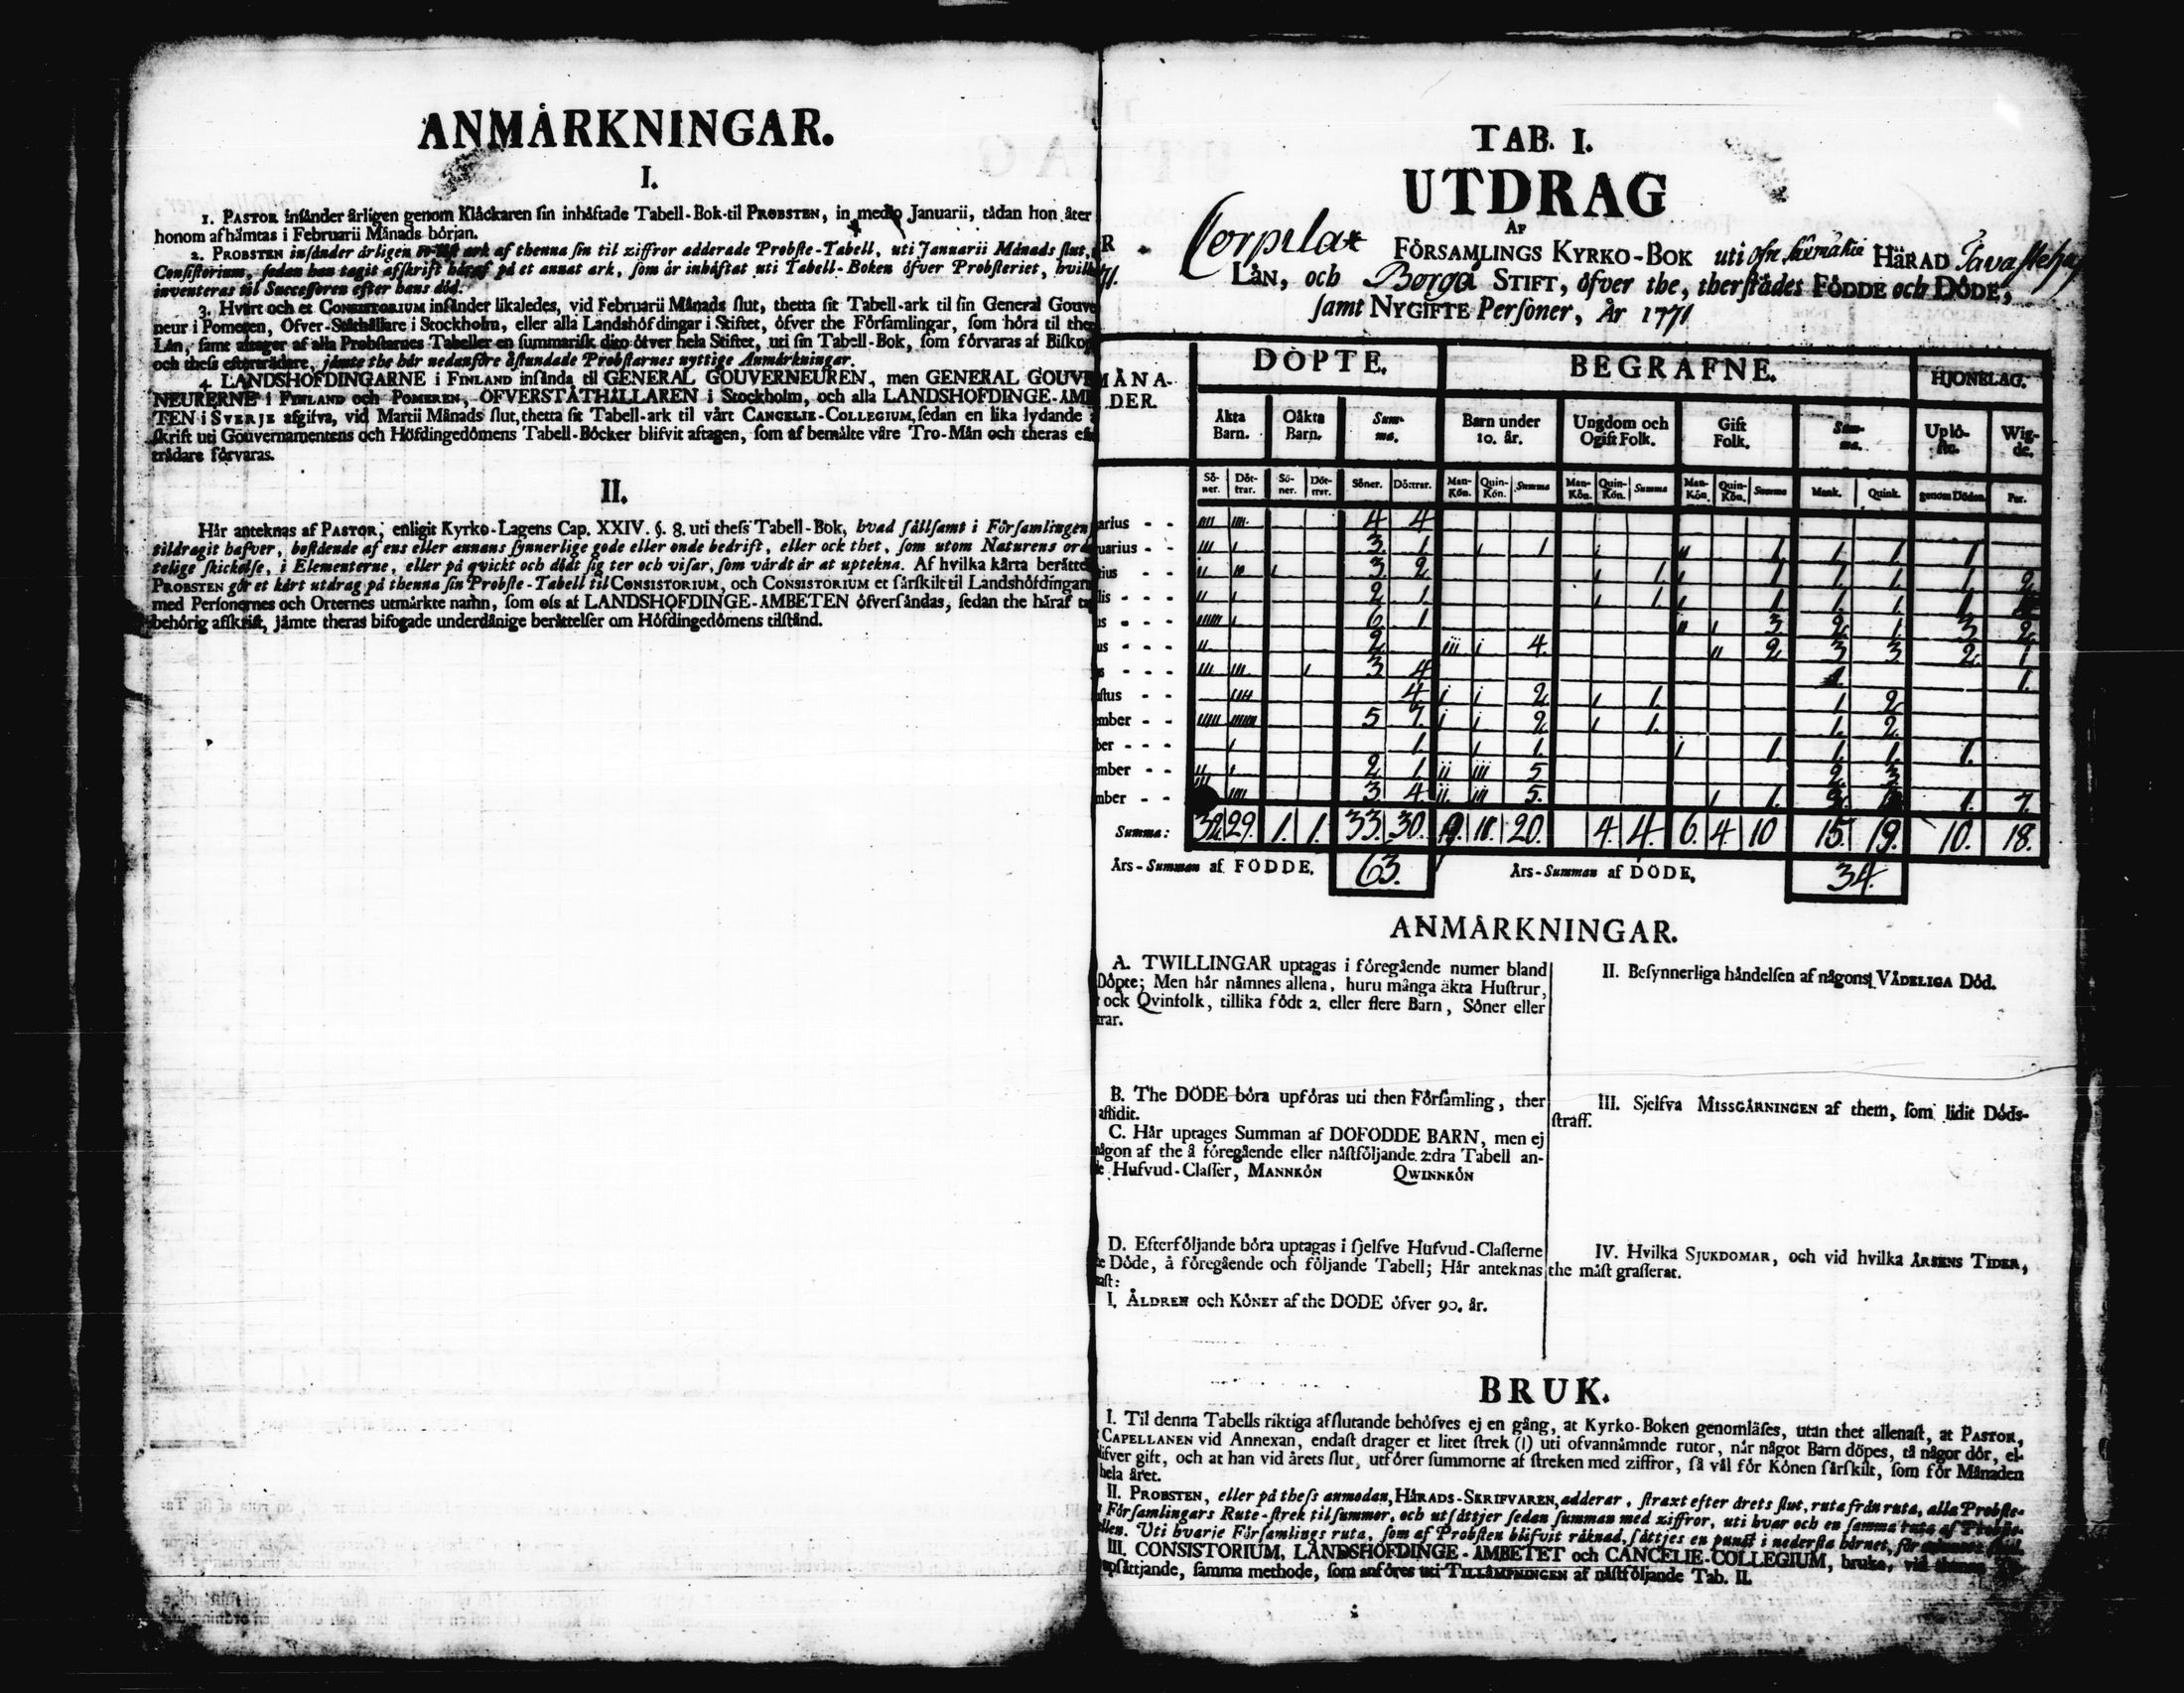 ANMÅRKNINGAR.
I.
1. PASTOR insånder årligen genom Klåckaren sin inhåftade Tabell-Bok til PROBSTEN, in medio Januarii, tådan hon åter
honom afhåmtas i Februarii Månads början.
2. PROBSTEN insånder årligen ark af thenna sin til ziffror adderade Probste-Tabell, uti Januarii Månads slut,
Consistorium, sedan han tagit afskrift håraf på et annat ark, som år inhåftat uti Tabell-Boken öfver Probsteriet, hvilk
inventeras til Successoren efter hans död.
3. Hvart och et CONSISTORIUM insånder likaledes, vid Februarii Månads slut, thetta sit Tabell-ark til sin General Gouve
neur i Pomeren, Öfver-Ståthållare i Stockholm, eller alla Landshöfdingar i Stiftet, öfver the Församlingar, som höra til the
Lån, samt aftager af alla Probstarnes Tabeller en summarisk dito öfver hela Stiftet, uti sin Tabell-Bok, som förvaras af Biskop
och thess efterträdare, jåmte the hår nedanföre åstundade Probstarnes nyttige Anmårkningar.
4. LANDSHÖFDINGARNE i FINLAND insånda til GENERAL GOUVERNEUREN, men GENERAL GOUVE
NEURERNE i FINLAND och POMEREN, ÖFVERSTÅTHÅLLAREN i Stockholm, och alla LANDSHÖFDINGE-ÅMB
TEN i SVERJE afgifva, vid Martii Månads slut, thetta sit Tabell-ark til vårt CANCELIE-COLLEGIUM, sedan en lika lydande
skrift uti Gouvernamentens och Höfdingedömens Tabell-Böcker blifvit aftagen, som af bemålte våre Tro-Mån och theras eft
trådare förvaras.
II.
Hår anteknas af PASTOR, enligit Kyrko-Lagens Cap. XXIV. §. 8. uti thess Tabell-Bok, hvad sållsamt i Församlingen
tildragit hafver, bestående af ens eller annans synnerlige gode eller onde bedrift, eller ock thet, som utom Naturens ord
telige skickelse, i Elementerne, eller på qvickt och dödt sig ter och visar, som vårdt år at uptekna. Af hvilka kårta beråtte
PROBSTEN gör et kårt utdrag på thenna sin Probste-Tabell til CONSISTORIUM, och CONSISTORIUM et sårskilt til Landshöfdingarn
med Personernes och Orternes utmårkte namn, som ofs af LANDSHÖFDINGE-ÅMBETEN öfversåndas, sedan the håraf ta
behörig afskrift, jåmte theras bifogade underdånige beråttelser om Höfdingedömens tilstånd.
TAB. I.
UTDRAG
AF
Corpilax FÖRSAMLINGS KYRKO-BOK uti HÄRAD Tavastehus
LÅN, och Borgå STIFT, öfver the, therstådes FÖDDE och DÖDE,
samt NYGIFTE Personer, År 1771
MÅNA- DÖPTE. BEGRAFNE. HJONELAG.
DER.
Åkta Barn. Oåkta Barn. Summa. Barn under 10. år. Ungdom och Ogift Folk. Gift Folk. Summa. Uplöste. Wigde.
Söner. Döttrar. Söner. Döttrar. Söner. Döttrar. Man-Kön. Quin-Kön. Summa Man-Kön. Quin-Kön. Summa Man-Kön. Quin-Kön. Summa Mank. Quink. genom Döden. Par.
arius - - 4 4
uarius - - 3. 1. 1 1. 1. 1. 1
tius - - 3 2 1. 1 1. 1. 1. 2
lis - - - 2 1. 1. 1 1. 1. 1
us - - - 6 1 3. 2. 1. 3 2.
us - - - 2 4. 2 3 3 2. 1
s - - - 3 4 1. 1.
stus - - 4. 2. 1. 1 2
ember - - 5 7. 2. 1. 1. 2.
ber - - - 1. 1. 1. 1. 1. 1.
ember - - 2. 1. 5 2. 3
mber - - 3. 4. 5. 1. 1. 7.
Summa: 32 29. 1. 1. 33. 30. 9. 11. 20. 4. 4. 6. 4. 10 15. 19. 10. 18.
Års-Summan af FÖDDE. 63. Års-Summan af DÖDE. 34.
ANMÅRKNINGAR.
A. TWILLINGAR uptagas i föregående numer bland
Döpte; Men hår nåmnes allena, huru många äkta Hustrur,
ock Qvinfolk, tillika födt 2. eller flere Barn, Söner eller
trar.
B. The DÖDE böra upföras uti then Församling, ther
astidit.
C. Hår uptages Summan af DÖFÖDDE BARN, men ej
någon af the å föregående eller nåstföljande 2:dra Tabell an-
Hufvud-Classer, MANNKÖN QWINNKÖN
D. Efterföljande böra uptagas i sjelfve Hufvud-Classerne
Döde, å föregående och följande Tabell; Hår anteknas
ast:
I. ÅLDREN och KÖNET af the DÖDE öfver 90. år.
II. Besynnerliga håndelsen af någons VÅDELIGA Död.
III. Sjelfva MISSGÅRNINGEN af them, som lidit Döds-
straff.
IV. Hvilka SJUKDOMAR, och vid hvilka ÅRSENS TIDER,
the måst grasserat.
BRUK.
I. Til denna Tabells riktiga afslutande behöfves ej en gång, at Kyrko-Boken genomläses, utan thet allenast, at PASTOR,
CAPELLANEN vid Annexan, endast drager et litet strek (I) uti ofvannåmnde rutor, når något Barn döpes, tå någor dör, el-
lifver gift, och at han vid årets slut, utförer summorne af streken med ziffror, så vål för Könen sårskilt, som för Månaden
hela året.
II. PROBSTEN, eller på thess anmodan, HÅRADS-SKRIFVAREN, adderar, straxt efter årets slut, ruta från ruta, alla Probste-
Församlingars Rute-strek tilsummor, och utsåttjer sedan summan med ziffror, uti hvar och en samma ruta af Probste-
llen. Uti hvarje Församlings ruta, som af Probsten blifvit råknad, såttjes en punkt i nedersta hörnet, för
III. CONSISTORIUM, LANDSHÖFDINGE-ÅMBETET och CANCELIE-COLLEGIUM, bruka, vid
upsåttjande, samma methode, som anföres uti TILLÅMPNINGEN af nåstföljande Tab. II.